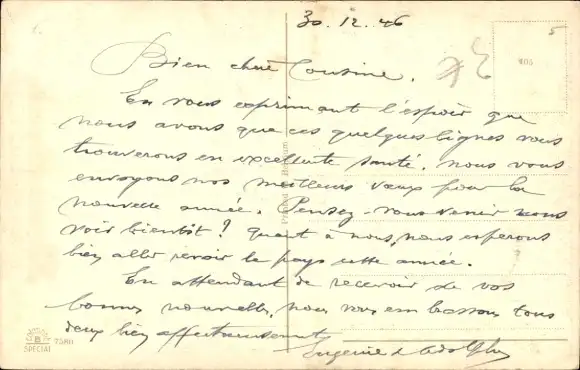 30.12.46
5
Bien chère Cousine,
405
En vous exprimant l'espoir que
nous avons que ces quelques lignes vous
trouverons en excellente santé, nous vous
envoyons nos meilleurs vœux pour la
nouvelle année. Pensez-vous venir nous
voir bientôt? Quant à nous, nous esperons
bien aller revoir le pays cette année.
En attendant de recevoir de vos
bonnes nouvelles, nous vous embrassons tous
deux bien affectueusement
Eugénie & Adolphe
B
SPECIAL
Printed in